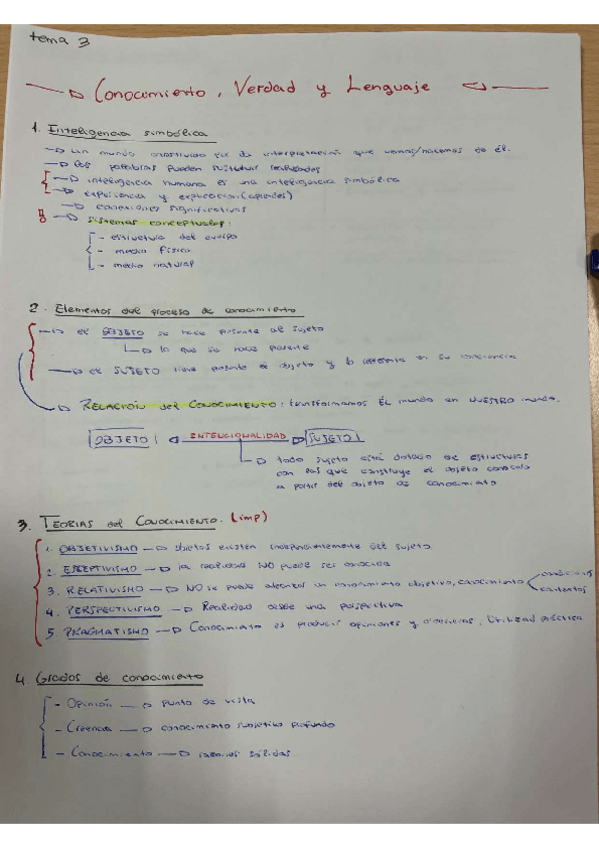 tema 3
Conocimiento, Verdad y Lenguaje
1. Inteligencia simbólica
un mundo construido es de interpretación que vemos/hacemos de él.
las palabras pueden sustituir realidades
inteligencia humana es una inteligencia simbólica
experiencia y explicación (aprender)
conexiones significativas
sistemas conceptuales:
- estructura del cuerpo
- medio físico
- medio natural
2. Elementos del proceso de conocimiento
el OBJETO se hace presente al sujeto
lo que se hace presente
el SUJETO tiene presente el objeto y lo en su conciencia
RELACIÓN del CONOCIMIENTO: transformamos EL mundo en NUESTRO mundo.
OBJETO INTENCIONALIDAD SUJETO
todo sujeto está dotado de estructuras
con las que construye el objeto conocido
a partir del objeto de conocimiento
3. TEORIAS del CONOCIMIENTO. (imp)
1. OBJETIVISMO objetos existen independientemente del sujeto.
2. ESCEPTIVISMO la realidad NO puede ser conocida
3. RELATIVISMO NO se puede alcanzar un conocimiento objetivo, conocimiento condiciones
contextos
4. PERSPECTIVISMO Realidad desde una perspectiva
5. PRAGMATISMO Conocimiento es producir opiniones y creencias, utilidad práctica
4. Grados de conocimiento
- Opinión punto de vista
- Creencia conocimiento subjetivo profundo
- Conocimiento razones sólidas